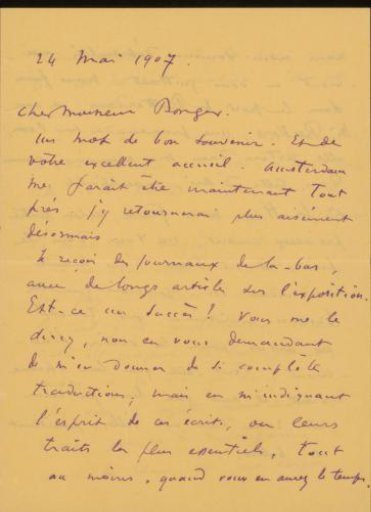 24 Mai 1907.
Cher Monsieur Bonger.
Un mot de bon souvenir. Et de
votre excellent accueil. Amsterdam
me paraît être maintenant tout
près, j'y retournerai plus aisément
désormais
Je reçois des journaux de la-bas,
avec de longs articles sur l'exposition.
Est-ce un succès! Vous me le
direz, non en vous demandant
de m'en donner de si complète
traductions, mais en m'indiquant
l'esprit de ces écrits, ou leurs
traits les plus essentiels, tout
au moins, quand vous en aurez le temps.